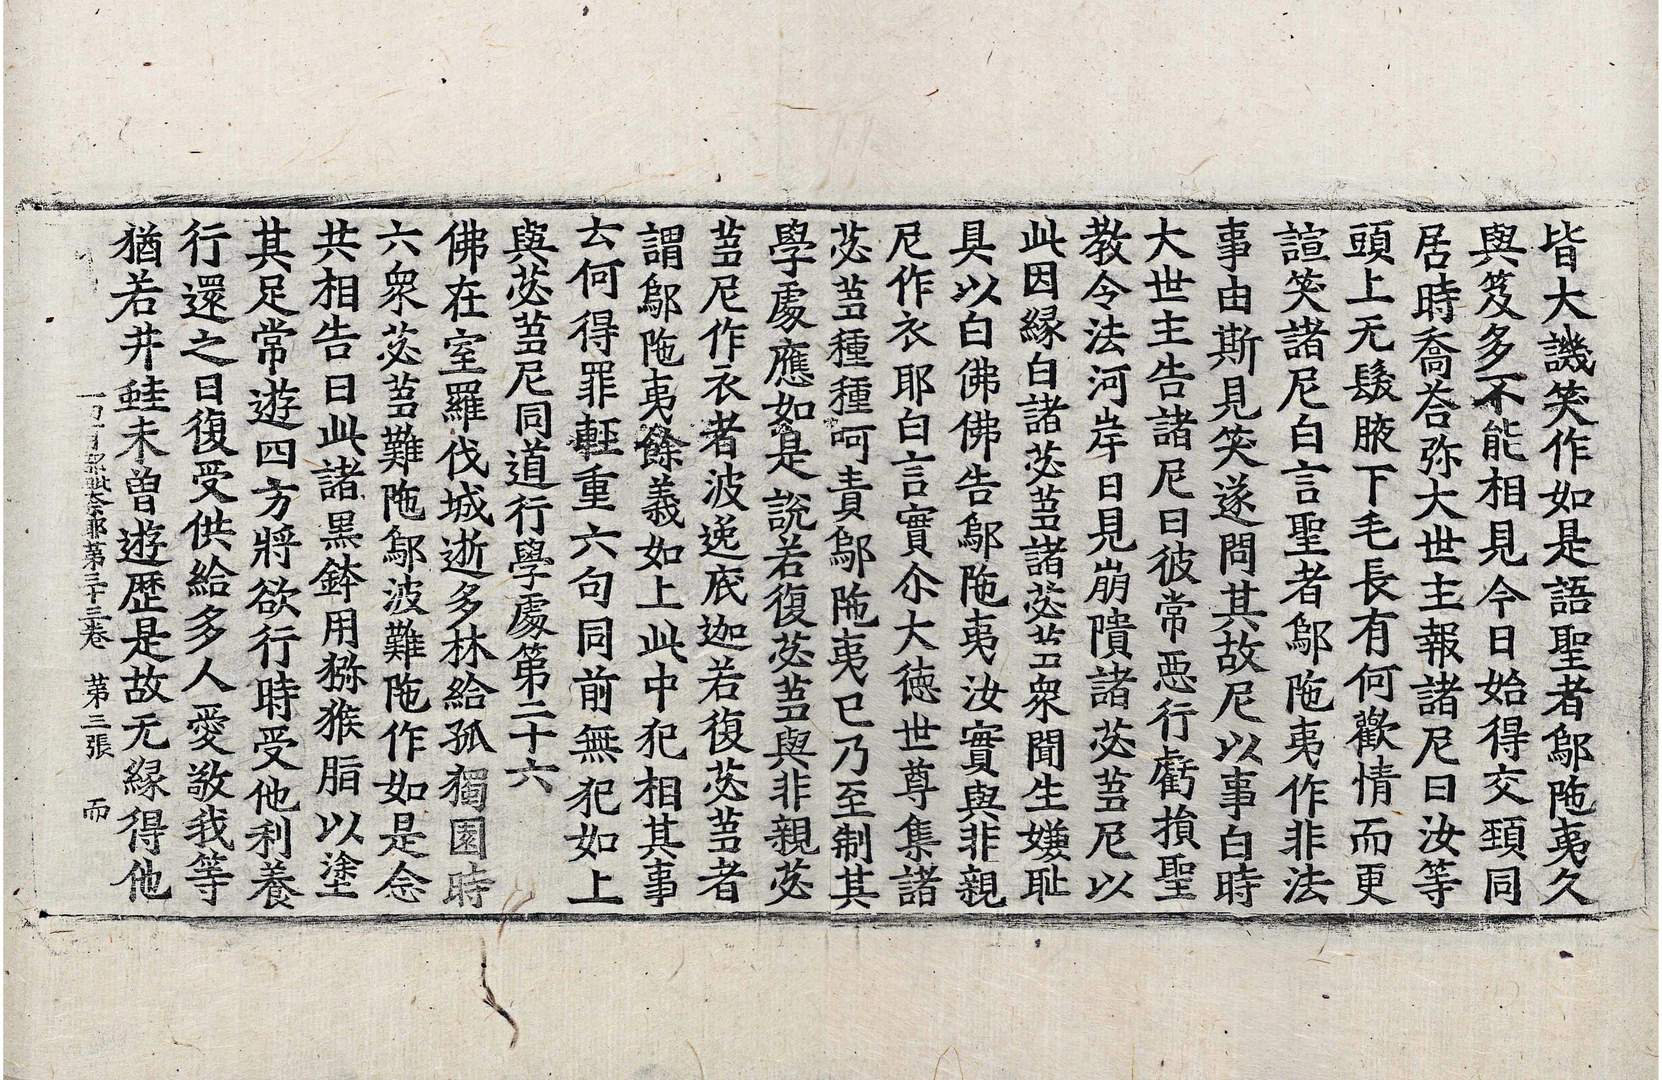 皆大譏笑作如是語聖者鄔陁夷久
與笈多不能相見今日始得交頸同
居時喬荅弥大世主報諸尼曰汝等
頭上无髮腋下毛長有何歡情而更
諠笑諸尼白言聖者鄔陁夷作非法
事由斯見笑遂問其故尼以事白時
大世主告諸尼曰彼常惡行虧損聖
教令法河岸日見崩隤諸苾芻尼以
此因緣白諸苾芻諸苾芻衆聞生嫌恥
具以白佛佛告鄔陁夷汝實與非親
尼作衣耶白言實尒大德世尊集諸
苾芻種種呵責鄔陁夷已乃至制其
學處應如是說若復苾芻與非親苾
芻尼作衣者波逸底迦若復苾芻者
謂鄔陁夷餘義如上此中犯相其事
去何得罪輕重六句同前無犯如上
與苾芻尼同道行學處第二十六
佛在室羅伐城逝多林給孤獨園時
六衆苾芻難陁鄔波難陁作如是念
共相告曰此諸黑鉢用猕猴脂以塗
其足常遊四方將欲行時受他利養
行還之日復受供給多人愛敬我等
猶若井蛙未曽遊歷是故无緣得他
一切有部毗奈耶第三十三卷 第三張 而